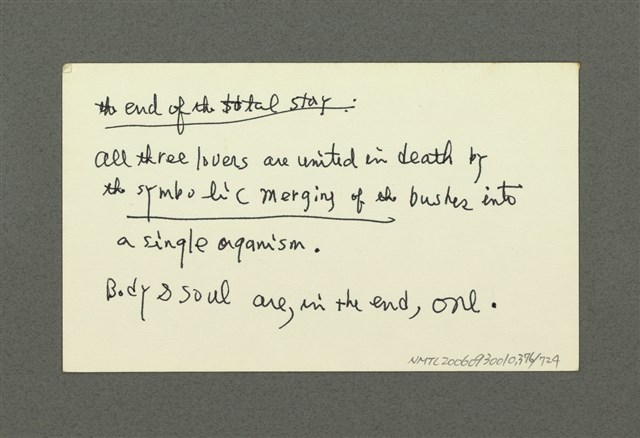 the end of the total story:
all three lovers are united in death by
the symbolic merging of the bushes into
a single organism.
Body & soul are, in the end, one.
NMTL20060930010,376/724